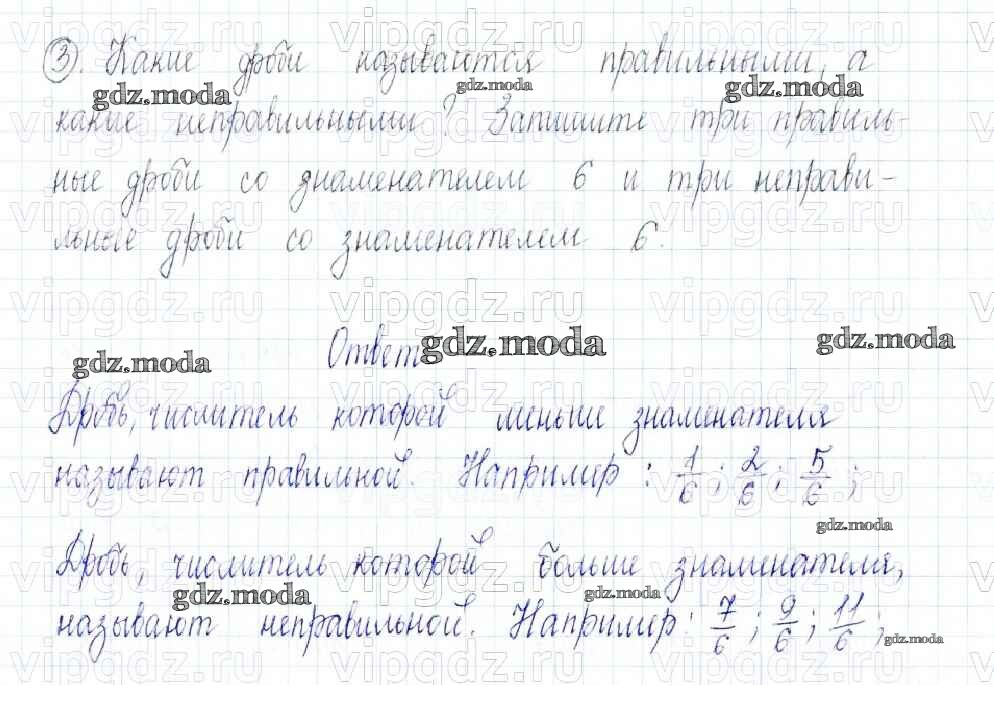 3. Какие дроби называются правильными, а
какие неправильными? Запишите три правиль-
ные дроби со знаменателем 6 и три неправи-
льные дроби со знаменателем 6.
Ответ
Дробь, числитель которой меньше знаменателя
называют правильной. Например: 1/6; 2/6; 5/6;
Дробь, числитель которой больше знаменателя,
называют неправильной. Например: 7/6; 9/6; 11/6;
gdz.moda
gdz.moda
gdz.moda
gdz.moda
gdz.moda
gdz.moda
gdz.moda
gdz.moda
gdz.moda
gdz.moda
vipgdz.ru